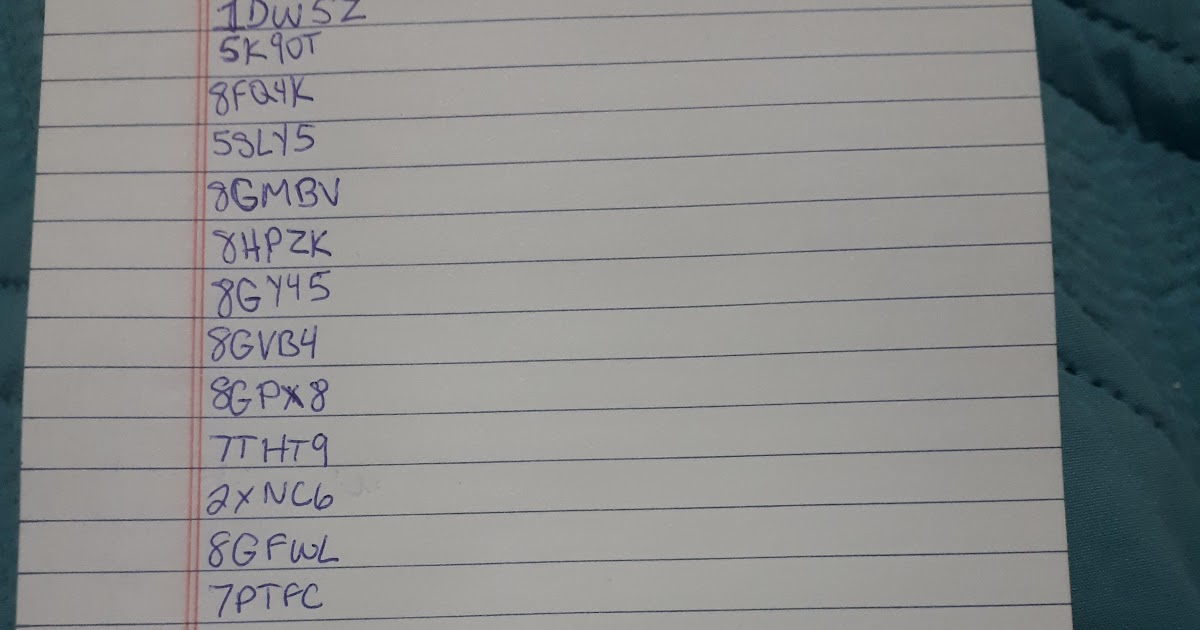 1DW5Z
5K90T
8FQ4K
5SLY5
8GMBV
8HPZK
8GY45
8GVB4
8GPX8
7THT9
2XNC6
8GFWL
7PTFC